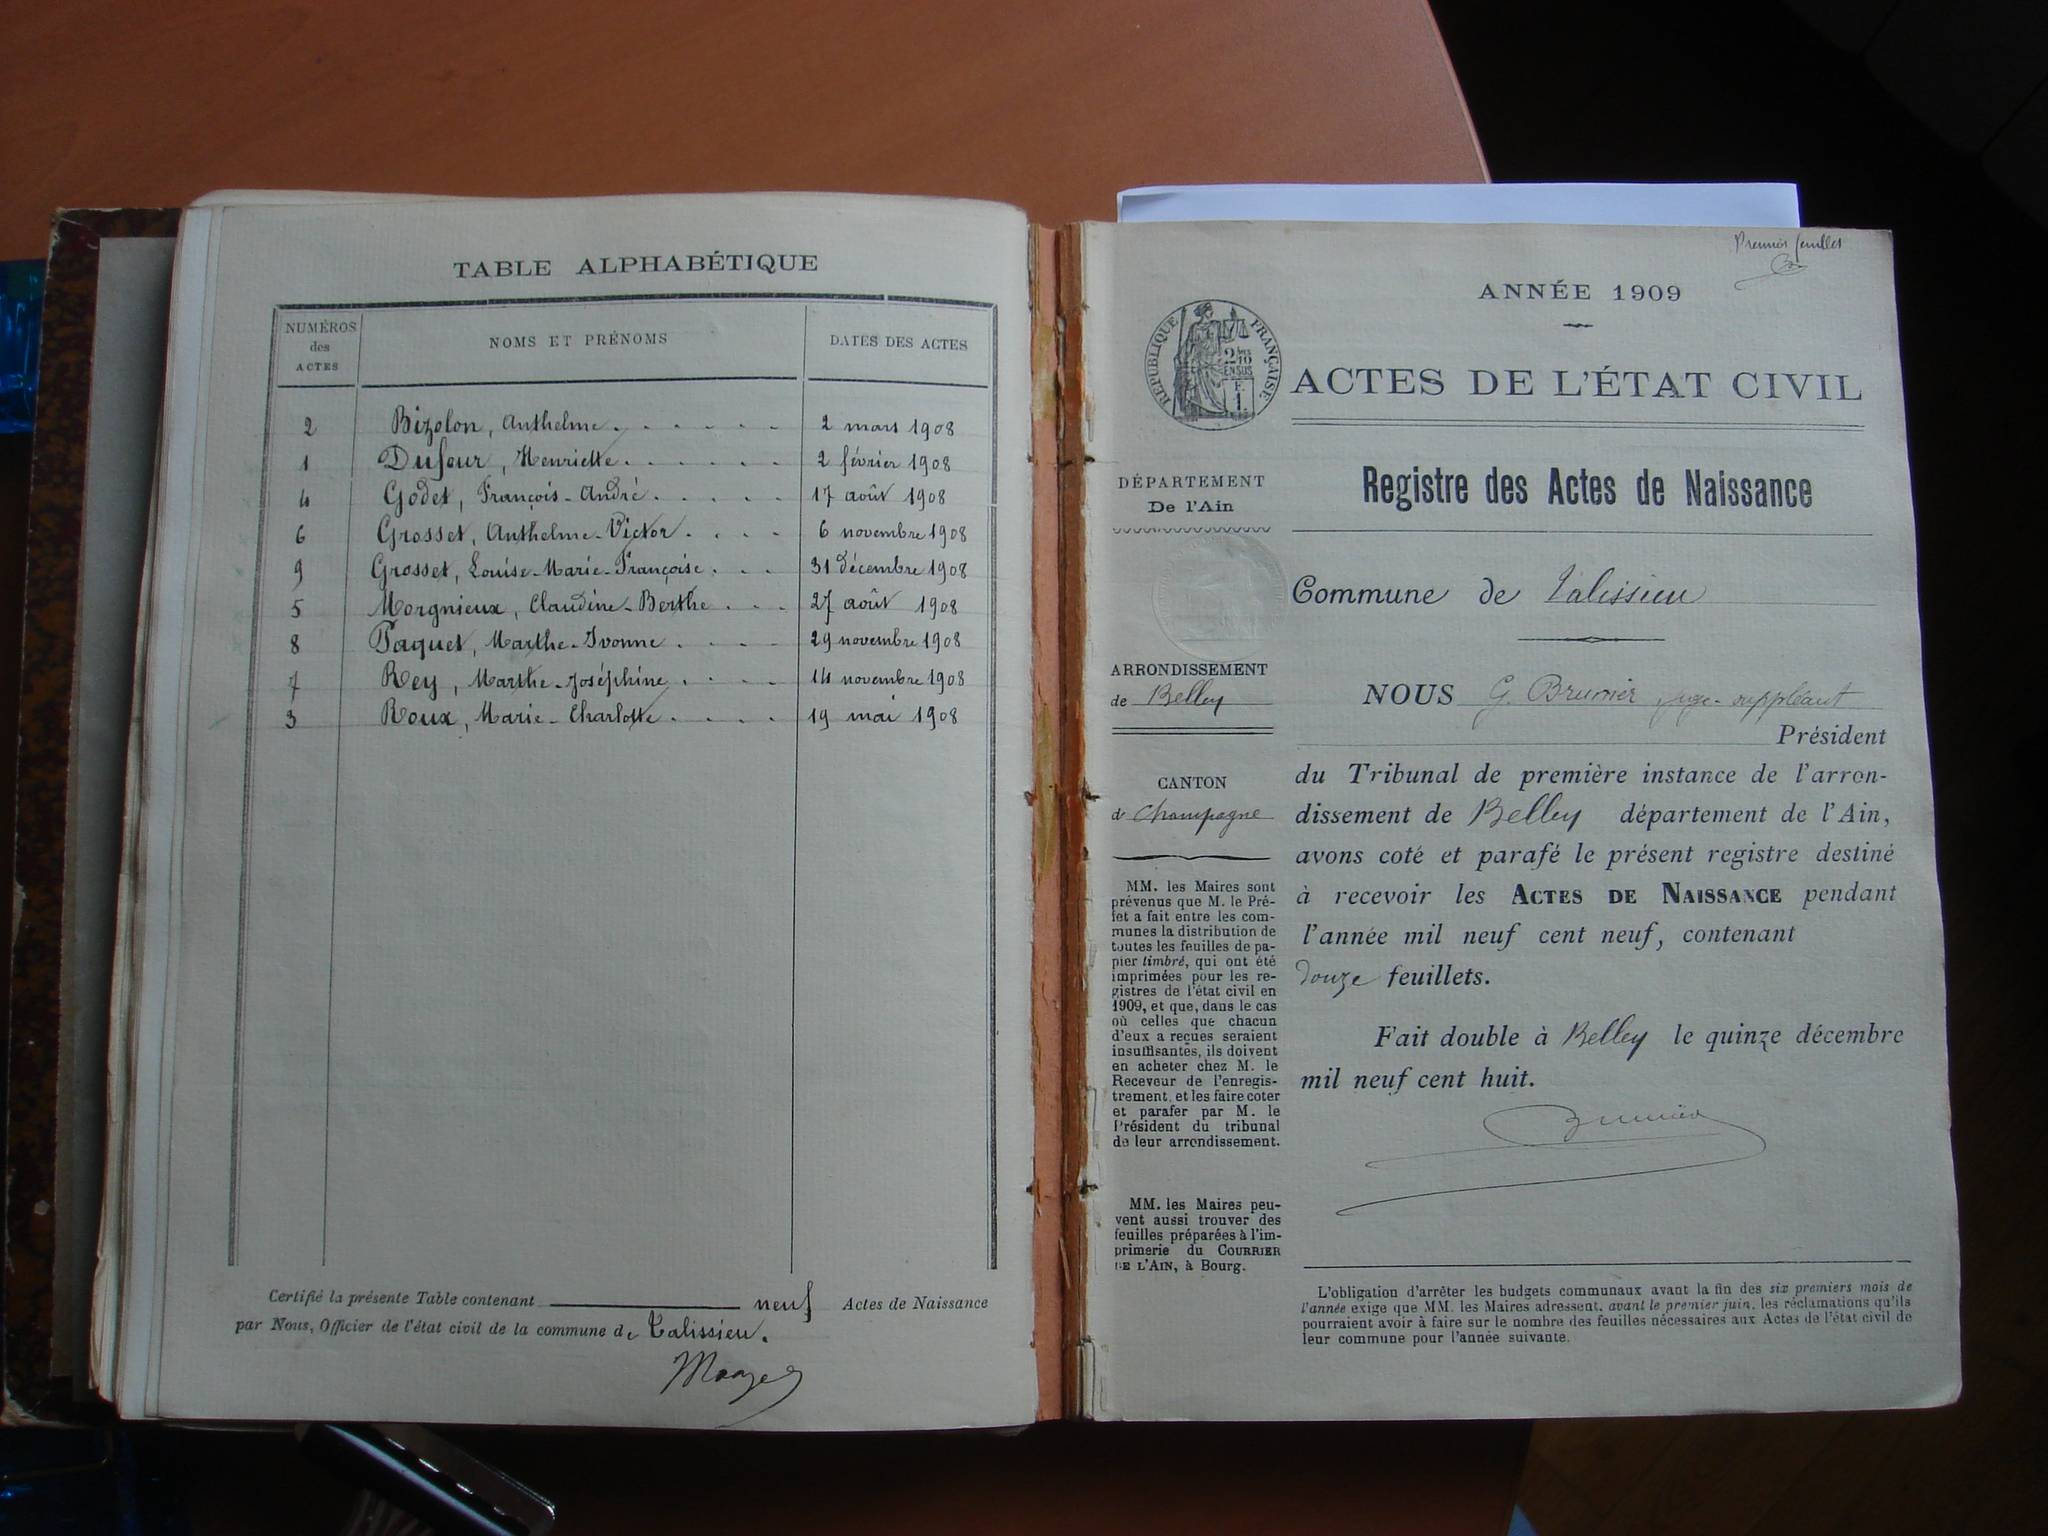 TABLE ALPHABÉTIQUE
NUMÉROS
des
ACTES
NOMS ET PRÉNOMS
DATES DES ACTES
2 Bizolon, Anthelme. . . . . . 2 mars 1908
1 Dufour, Henriette. . . . . . 2 février 1908
4 Godet, François-André. . . . . 17 août 1908
6 Grosset, Anthelme-Victor. . . . 6 novembre 1908
9 Grosset, Louise-Marie-Françoise. . . 31 décembre 1908
5 Morgnieux, Claudine-Berthe . . . 27 août 1908
8 Paquet, Marthe-Yvonne . . . . 29 novembre 1908
7 Rey, Marthe-Joséphine. . . . . 14 novembre 1908
3 Roux, Marie-Charlotte. . . . . 19 mai 1908
Certifié la présente Table contenant neuf Actes de Naissance
par Nous, Officier de l'état civil de la commune de Talissieu.
Premier feuillet
ANNÉE 1909
RÉPUBLIQUE FRANÇAISE
2/10 EN SUS
F.
1.
ACTES DE L'ÉTAT CIVIL
DÉPARTEMENT
De l'Ain
Registre des Actes de Naissance
Commune de Talissieu
ARRONDISSEMENT
de Belley
CANTON
de Champagne
MM. les Maires sont
prévenus que M. le Pré-
fet a fait entre les com-
munes la distribution de
toutes les feuilles de pa-
pier timbré, qui ont été
imprimées pour les re-
gistres de l'état civil en
1909, et que, dans le cas
où celles que chacun
d'eux a reçues seraient
insuffisantes, ils doivent
en acheter chez M. le
Receveur de l'enregis-
trement, et les faire coter
et parafer par M. le
Président du tribunal
de leur arrondissement.
MM. les Maires peu-
vent aussi trouver des
feuilles préparées à l'im-
primerie du COURRIER
DE L'AIN, à Bourg.
NOUS G. Brunier juge-suppléant
Président
du Tribunal de première instance de l'arron-
dissement de Belley département de l'Ain,
avons coté et parafé le présent registre destiné
à recevoir les ACTES DE NAISSANCE pendant
l'année mil neuf cent neuf, contenant
douze feuillets.
Fait double à Belley le quinze décembre
mil neuf cent huit.
Brunier
L'obligation d'arrêter les budgets communaux avant la fin des six premiers mois de
l'année exige que MM. les Maires adressent, avant le premier juin, les réclamations qu'ils
pourraient avoir à faire sur le nombre des feuilles nécessaires aux Actes de l'état civil de
leur commune pour l'année suivante.